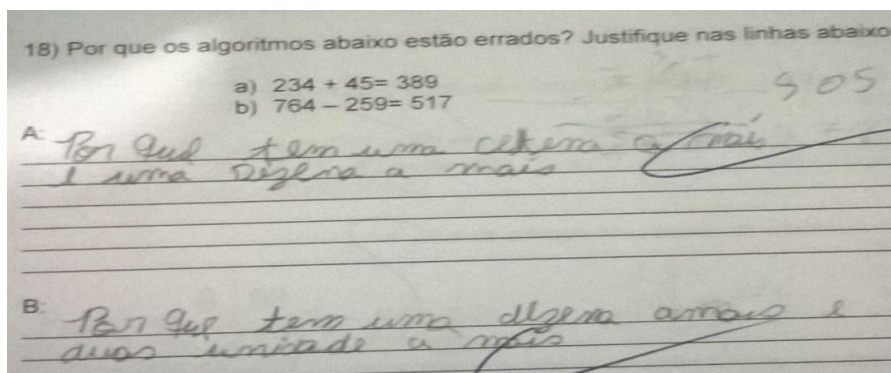 18) Por que os algoritmos abaixo estão errados? Justifique nas linhas abaixo
a) 234 + 45= 389
b) 764 – 259= 517
505
A: Por que tem uma cetena a mais
e uma Dezena a mais
B: Por que tem uma dezena amais e
duas unidade a mais